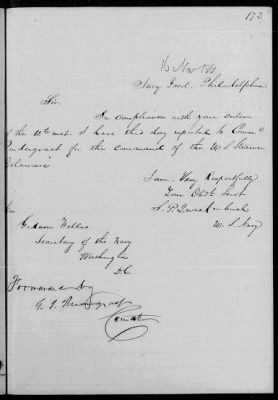 173
16 Nov 1861
Navy Yard, Philadelphia
Sir
In compliance with your orders
of the 13th inst. I have this day reported to Comre
Pendergrast for the command of the U.S. Steamer
Delaware
I am, Very Respectfully
Your Obdt Servt
S. P. Quackenbush
U. S. Navy
Hon
Gideon Welles
Secretary of the Navy
Washington
D.C.
Forwarded by
G. J. Pendergrast
Comdt